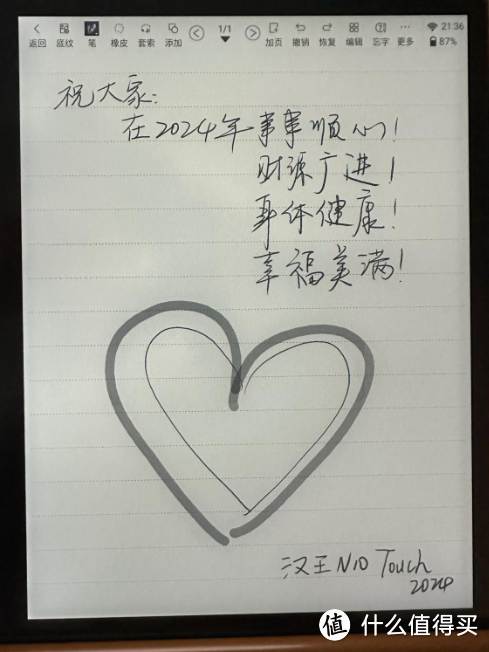 1/1
21:36
返回 底纹 笔 橡皮 套索 添加 加页 撤销 恢复 编辑 忘字 更多 87%
祝大家:
在2024年事事顺心!
财源广进!
身体健康!
幸福美满!
汉王N10 Touch
2024
值 什么值得买